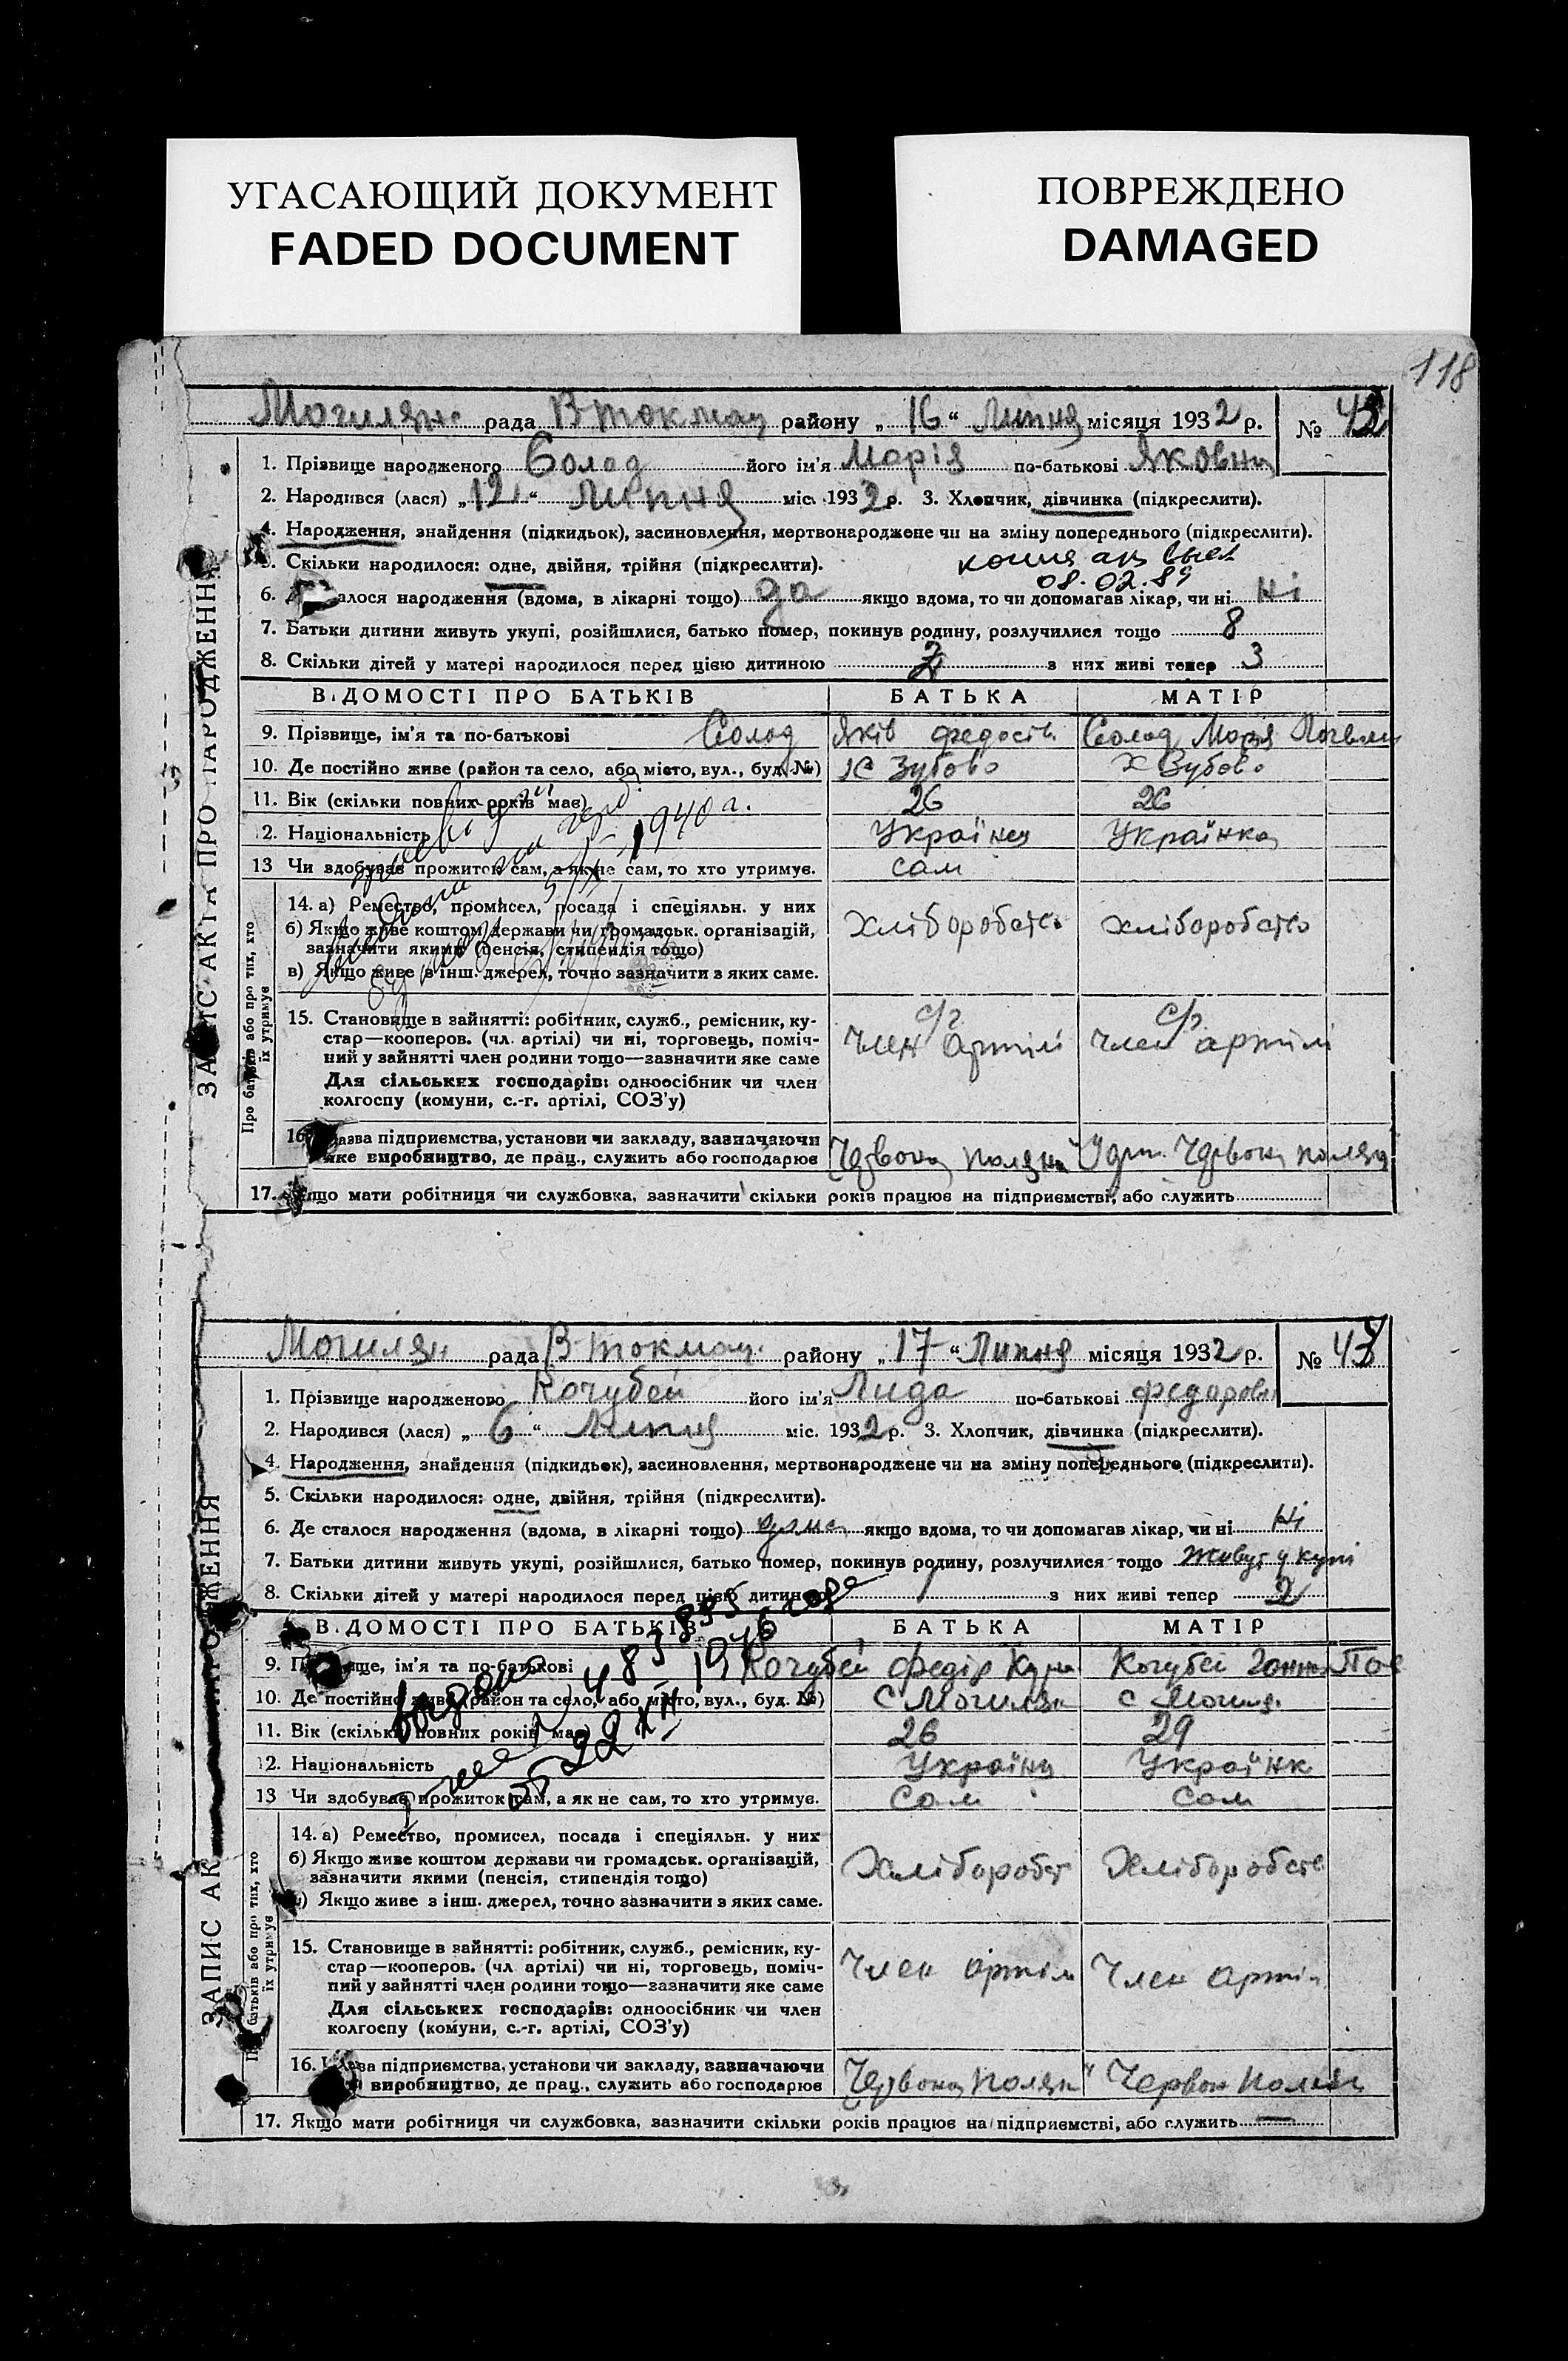 УГАСАЮЩИЙ ДОКУМЕНТ
FADED DOCUMENT
ПОВРЕЖДЕНО
DAMAGED
118
Могилян рада В токмац району „ 16 “ Липня місяця 1932 р. №
1. Прізвище народженого Солод його ім'я Марія по-батькові Яковна
2. Народився (лася) „ 12 “ Липня міс. 1932 р. 3. Хлопчик, дівчинка (підкреслити).
4. Народження, знайдення (підкидьок), засиновлення, мертвонароджене чи на зміну попереднього (підкреслити).
5. Скільки народилося: одне, двійня, трійня (підкреслити).
08.02.89
6. алося народження (вдома, в лікарні тощо) да якщо вдома, то чи допомагав лікар, чи ні ні
7. Батьки дитини живуть укупі, розійшлися, батько помер, покинув родину, розлучилися тощо 8
8. Скільки дітей у матері народилося перед цією дитиною з них живі тепер 3
ВІДОМОСТІ ПРО БАТЬКІВ БАТЬКА МАТІР
9. Прізвище, ім'я та по-батькові Солод Яків Солод Марія
10. Де постійно живе (район та село, або місто, вул., буд. №) Зубово Х Зубово
11. Вік (скільки повних років має) 26 26
1940 г.
12. Національність Українец Українка
13 Чи здобуває прожиток сам, а як не сам, то хто утримує. сам
ЗАПИС АКТА ПРО НАРОДЖЕННЯ
Про батьків або про тих, хто їх утримує
14. а) Ремество, промисел, посада і спеціяльн. у них
б) Якщо живе коштом держави чи громадськ. організацій,
зазначити якими (пенсія, стипендія тощо)
в) Якщо живе з інш. джерел, точно зазначити з яких саме.
Хліборобство хліборобство
15. Становище в зайнятті: робітник, служб., ремісник, ку-
стар—кооперов. (чл. артілі) чи ні, торговець, поміч-
ний у зайнятті член родини тощо—зазначити яке саме
Для сільських господарів: одноосібник чи член
колгоспу (комуни, с.-г. артілі, СОЗ'у)
с/г Член артілі с/г член артілі
16. Назва підприємства, установи чи закладу, зазначаючи
яке виробництво, де прац., служить або господарює Червона поляна Червона поляна
17. Якщо мати робітниця чи службовка, зазначити скільки років працює на підприємстві, або служить
Могилян рада В токмац. району „ 17 “ Липня місяця 1932 р. №
1. Прізвище народженого Кочубей його ім'я Лида по-батькові федоровн
2. Народився (лася) „ 6 “ Липня міс. 1932 р. 3. Хлопчик, дівчинка (підкреслити).
4. Народження, знайдення (підкидьок), засиновлення, мертвонароджене чи на зміну попереднього (підкреслити).
5. Скільки народилося: одне, двійня, трійня (підкреслити).
6. Де сталося народження (вдома, в лікарні тощо) дома якщо вдома, то чи допомагав лікар, чи ні ні
7. Батьки дитини живуть укупі, розійшлися, батько помер, покинув родину, розлучилися тощо живут у купі
8. Скільки дітей у матері народилося перед цією дитиною з них живі тепер 2
ВІДОМОСТІ ПРО БАТЬКІВ БАТЬКА МАТІР
9. Прізвище, ім'я та по-батькові Кочубей федір Кочубей Ганна
10. Де постійно живе (район та село, або місто, вул., буд. №) С Могилян с Могиля
11. Вік (скільки повних років має) 26 29
12. Національність Українц Українк
13 Чи здобуває прожиток сам, а як не сам, то хто утримує. Сам Сам
от 22 XII 1976 года
ЗАПИС АКТА ПРО НАРОДЖЕННЯ
Про батьків або про тих, хто їх утримує
14. а) Ремество, промисел, посада і спеціяльн. у них
б) Якщо живе коштом держави чи громадськ. організацій,
зазначити якими (пенсія, стипендія тощо)
в) Якщо живе з інш. джерел, точно зазначити з яких саме.
Хліборобст Хліборобств
15. Становище в зайнятті: робітник, служб., ремісник, ку-
стар—кооперов. (чл. артілі) чи ні, торговець, поміч-
ний у зайнятті член родини тощо—зазначити яке саме
Для сільських господарів: одноосібник чи член
колгоспу (комуни, с.-г. артілі, СОЗ'у)
Член артіл Член артіл
16. Назва підприємства, установи чи закладу, зазначаючи
яке виробництво, де прац., служить або господарює Червона поляна Червон поляна
17. Якщо мати робітниця чи службовка, зазначити скільки років працює на підприємстві, або служить —